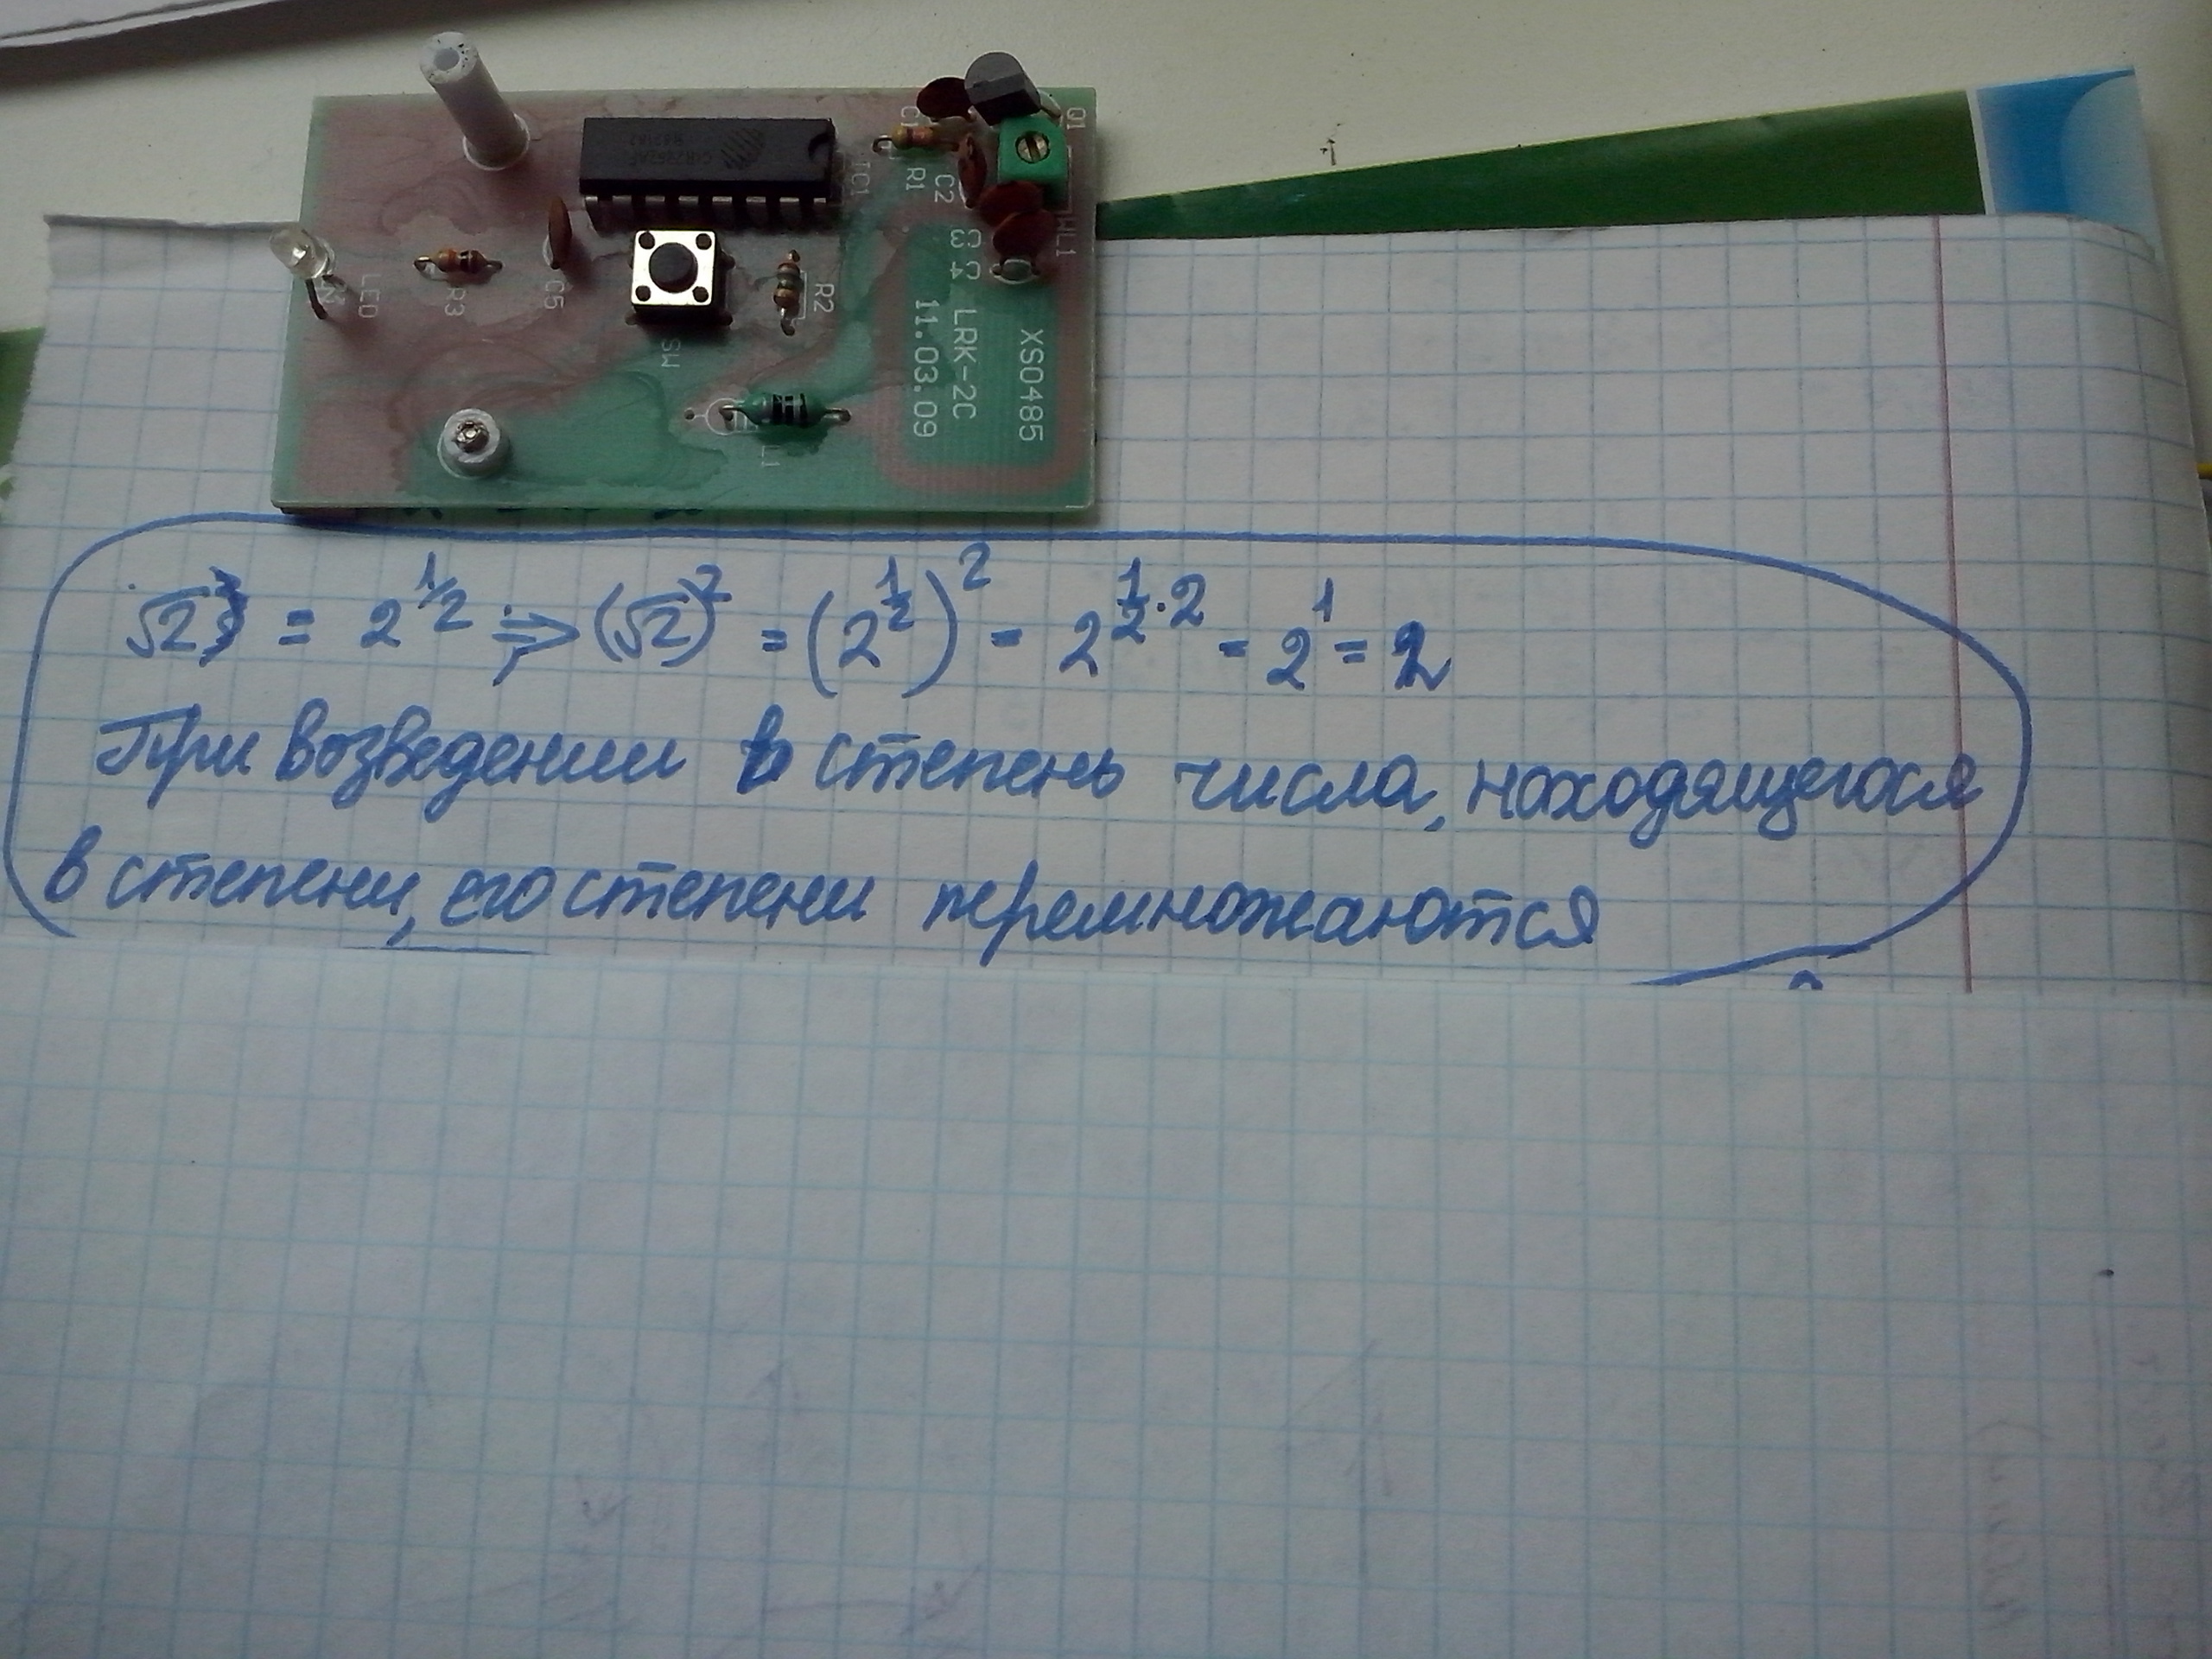 Q1
C1
IC1
R1
C2
WL1
C3
C4
LED
R3
C5
R2
SW
L1
XS0485
LRK-2C
11.03.09
√2 = 2^1/2 ⇒ (√2)^2 = (2^1/2)^2 = 2^1/2·2 = 2^1 = 2
При возведении в степень числа, находящегося
в степени, его степени перемножаются